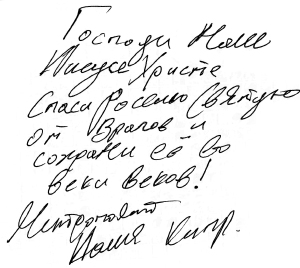 Господи Наш
Иисусе Христе
Спаси Россию Святую
от врагов и
сохрани её во
веки веков!
Митрополит